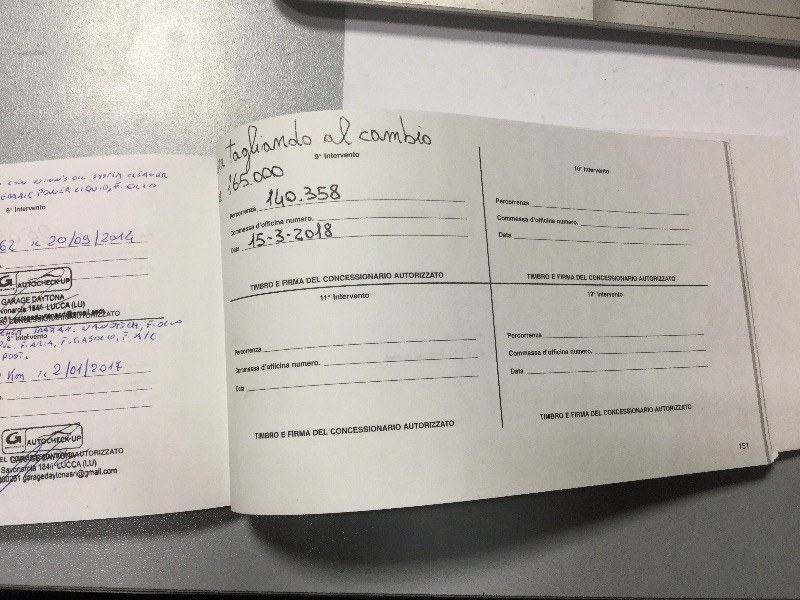 CON WINN'S OIL SYSTEM CLEANER
POWER LIQUID, F. OLIO
6° Intervento
62 il 20/09/2014
G AUTOCHECK-UP
GARAGE DAYTONA
LUCCA (LU)
CONCESSIONARIO AUTORIZZATO
8° Intervento
F. OLIO
F. ARIA, F. GASOLIO, F. A/C
POST.
Km il 2/01/2017
G AUTOCHECK-UP
AUTORIZZATO
Savonarola LUCCA (LU)
garagedaytonasrl@gmail.com
tagliando al cambio
165.000
9° Intervento
Percorrenza 140.358
Commessa d'officina numero.
Data 15-3-2018
TIMBRO E FIRMA DEL CONCESSIONARIO AUTORIZZATO
10° Intervento
Percorrenza
Commessa d'officina numero.
Data
TIMBRO E FIRMA DEL CONCESSIONARIO AUTORIZZATO
11° Intervento
Percorrenza
Commessa d'officina numero.
Data
TIMBRO E FIRMA DEL CONCESSIONARIO AUTORIZZATO
12° Intervento
Percorrenza
Commessa d'officina numero.
Data
TIMBRO E FIRMA DEL CONCESSIONARIO AUTORIZZATO
151